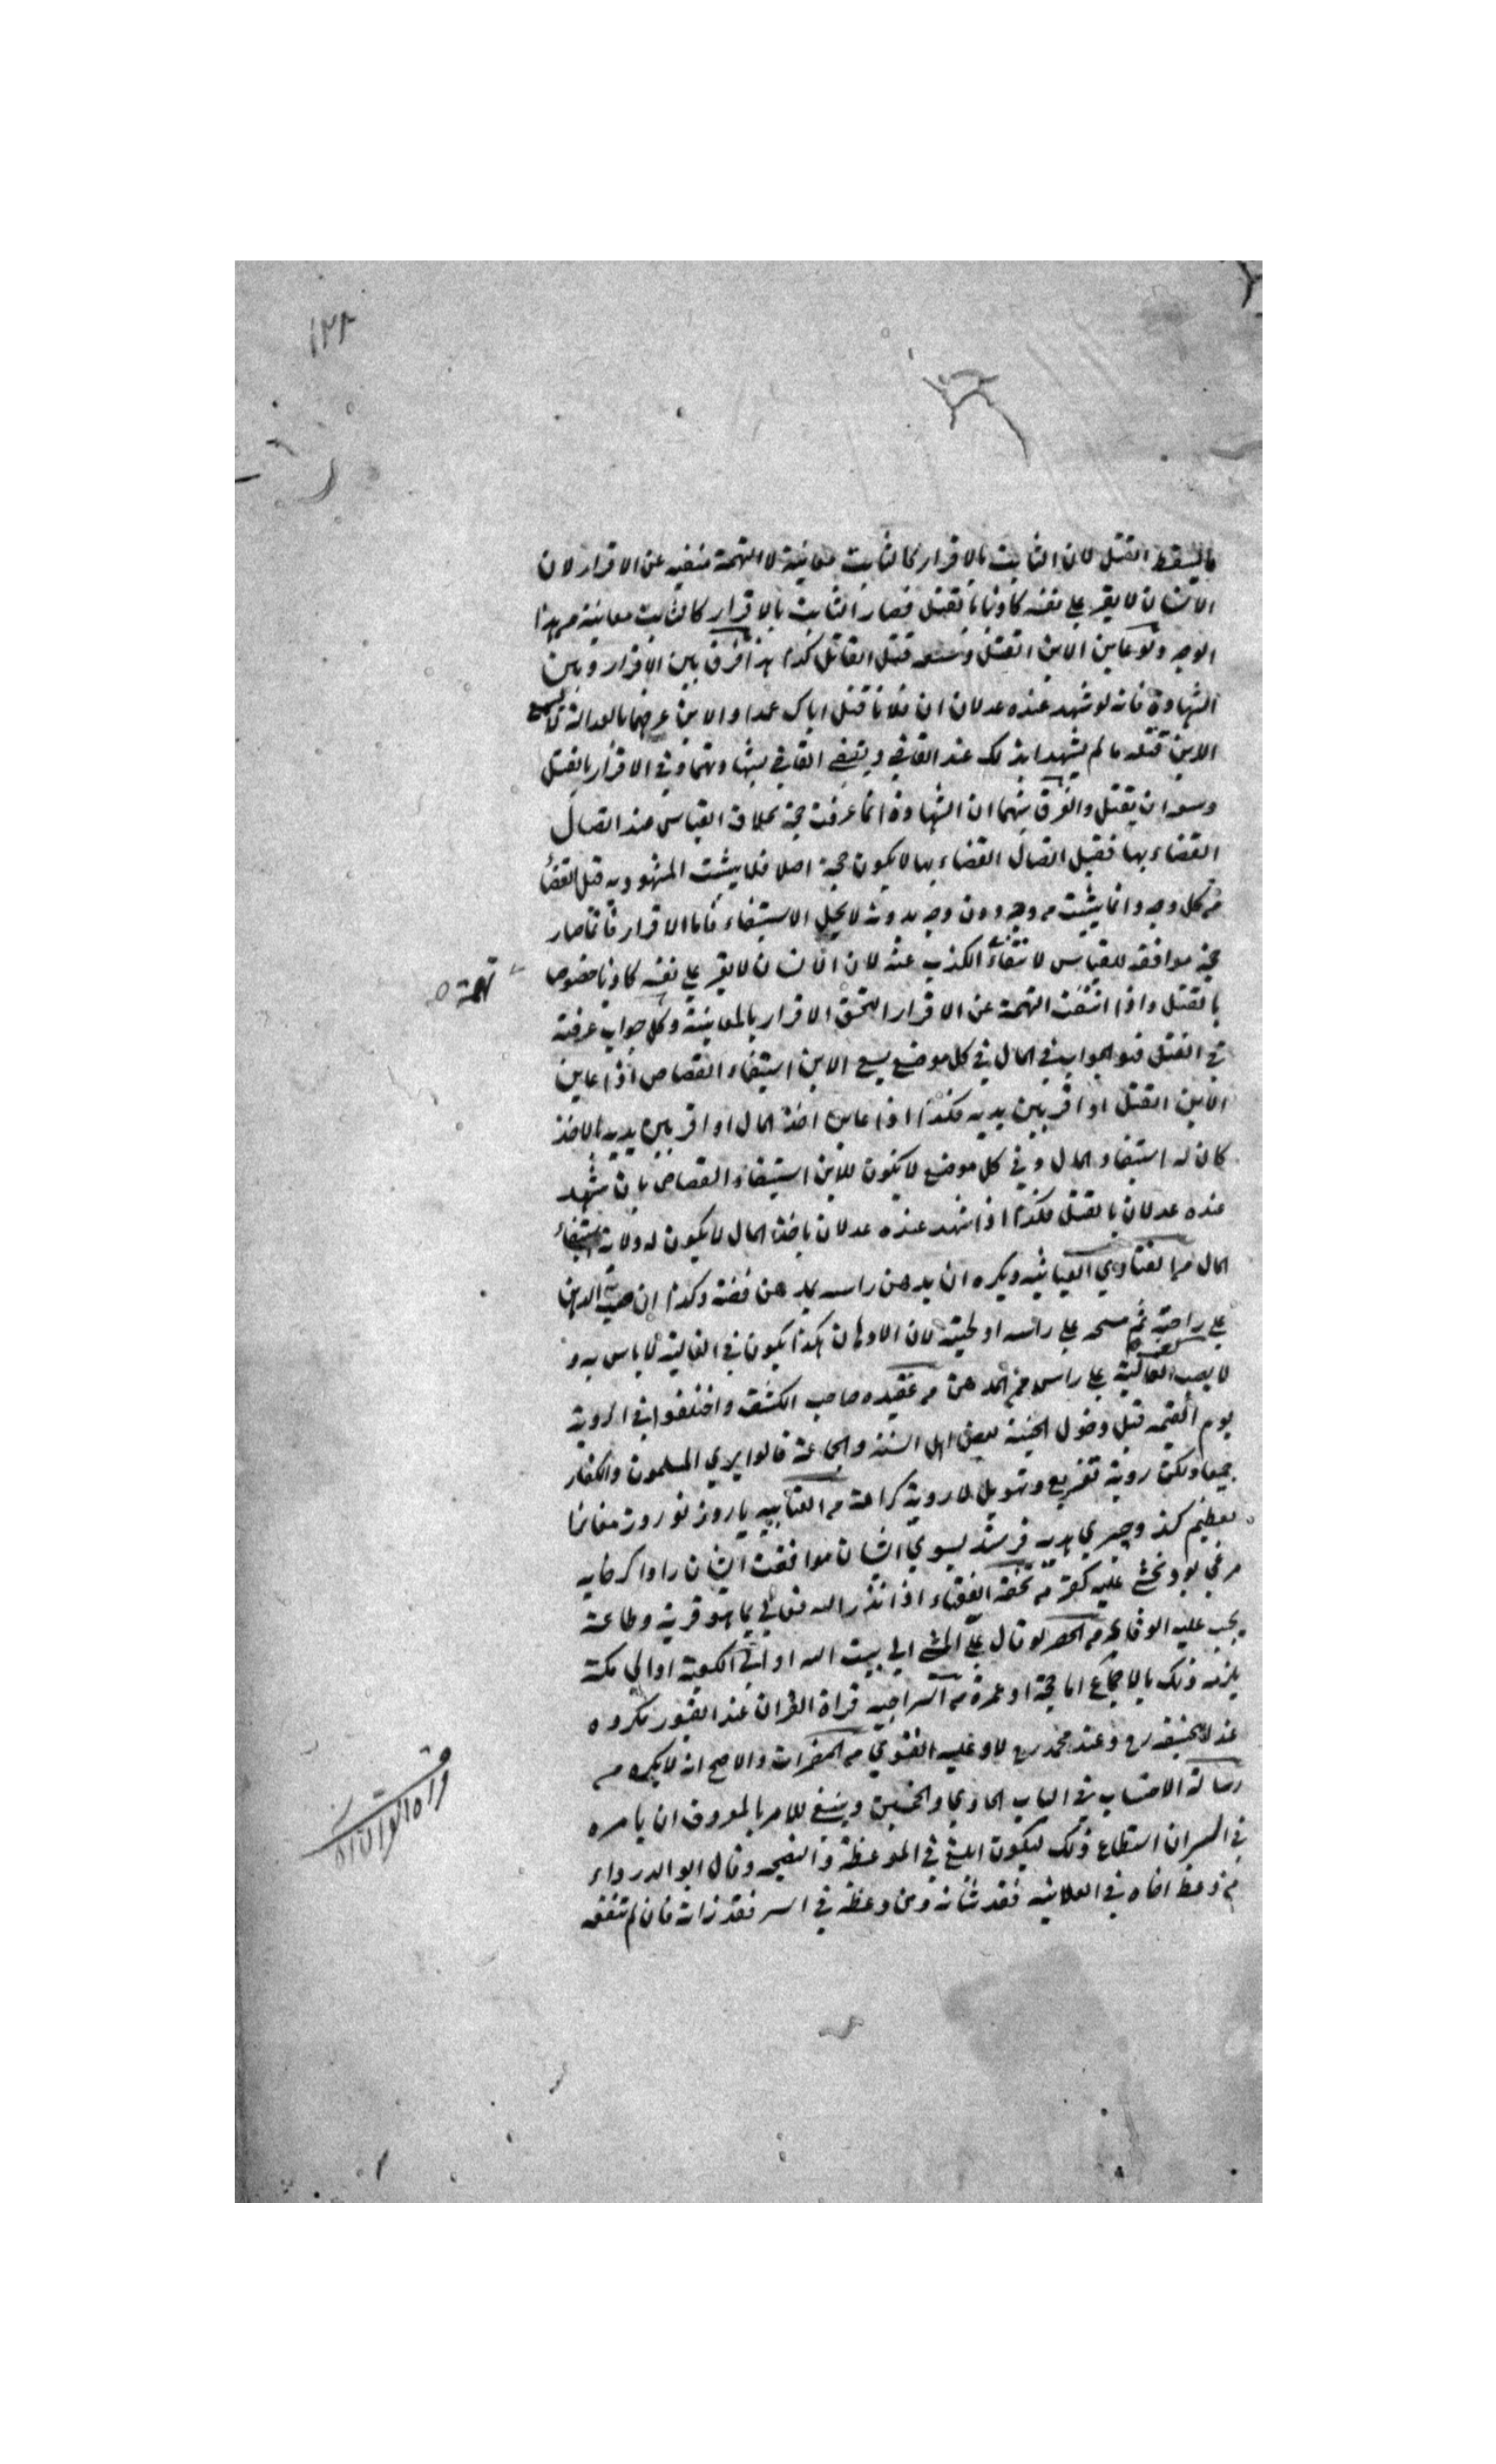 ١٣٨
القتل لان الثابت بالاقرار كالثابت معاينة لا التهمة منفيه عن الاقرار لان
الانسان لا يقر على نفسه كاذبا بالقتل فصار الثابت بالاقرار كالثابت معاينة من هذا
الوجه ولو عاين الابن القتل وسعه قتل القاتل كذا هذا فرق بين الاقرار وبين
الشهادة فانه لو شهد عنده عدلان ان فلانا قتل اباك عمدا والابن عرفهما بالعدالة لا يسع
الابن قتله ما لم يشهدا بذلك عند القاضي ويقضي القاضي بشهادتهما وفي الاقرار بالقتل
وسعه ان يقتل والفرق بينهما ان الشهادة انما عرفت حجة بخلاف القياس عند اتصال
القضاء بها فقبل اتصال القضاء بها لا يكون حجة اصلا فلا يثبت المشهود به قبل القضاء
من كل وجه وانما يثبت من وجه دون وجه بدونه لا يحل الاستيفاء فاما الاقرار فانما صار
حجة موافقه للقياس لانتفاء الكذب عنه لان الانسان لا يقر على نفسه كاذبا خصوصا
تهمة
بالقتل واذا انتفت التهمة عن الاقرار التحق الاقرار بالمعاينة وكل جواب عرفته
في القتل فهو الجواب في المال في كل موضع يسع الابن استيفاء القصاص اذا عاين
الابن القتل او اقر بين يديه فكذا اذا عاين اخذ المال او اقر بين يديه بالاخذ
كان له استيفاء المال وفي كل موضع لا يكون للابن استيفاء القصاص بان شهد
عنده عدلان بالقتل فكذا اذا شهد عنده عدلان باخذ المال لا يكون له ولاية استيفاء
المال من الفتاوي الغياثيه ويكره ان يدهن راسه بمدهن فضة وكذا ان صب الدهن
على راحته ثم مسحه على راسه او لحيته لان الادهان هكذا يكون في الغالية لا باس به و
لا يصب الغالية على راس من الدهن من عقيده صاحب الكشف واختلفوا في الروية
يوم القيمة قبل دخول الجنة بعض اهل السنة والجماعة قالوا يري المسلمون والكفار
جميعا ولكن روية تفزيع وتهويل لا روية كرامة من العتابيه يا روز نوروز مغانرا
تعظيم كند وچيزي هديه فرستد بسوي ايشان موافقت ايشان را واكر
بود يخشى عليه كفر من تحفة الفقهاء اذا نذر الله تعالى بما هو قربة وطاعة
يجب عليه الوفا به من الحصر لو قال علي المشي الي بيت الله او الي الكعبة او الي مكة
يلزمه ذلك بالاجماع اما حجة او عمرة من السراجيه قراة القران عند القبور مكروه
عند ابي حنيفه رح وعند محمد رح لا وعليه الفتوي من المضمرات والاصح انه لا يكره من
قراة القران
رسالة الاحتساب في الباب الحادي والخمسين وينبغي للامر بالمعروف ان يامره
في السر ان استطاع ذلك ليكون ابلغ في الموعظة والنصيحه وقال ابو الدرداء
من وعظ اخاه في العلانيه فقد شانه ومن وعظه في السر فقد زانه فان لم تنفعه